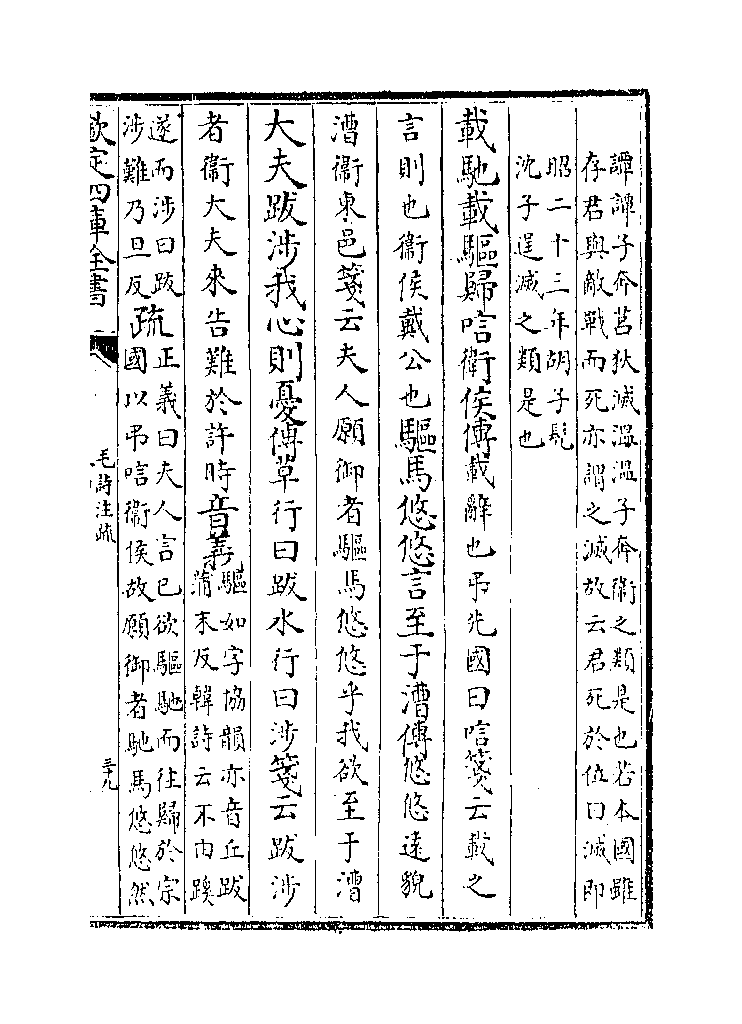 譚譚子奔莒狄滅溫溫子奔衛之類是也若本國雖
存君與敵戰而死亦謂之滅故云君死於位曰滅即
昭二十三年胡子髠
沈子逞滅之類是也
載馳載驅歸唁衛侯傳載辭也弔失國曰唁箋云載之
言則也衛侯戴公也驅馬悠悠言至于漕傳悠悠遠貌
漕衛東邑箋云夫人願御者驅馬悠悠乎我欲至于漕
大夫跋涉我心則憂傳草行曰跋水行曰涉箋云跋涉
者衛大夫來告難於許時音義驅如字協韻亦音丘跋
蒲末反韓詩云不由蹊
遂而涉曰跋
涉難乃旦反疏正義曰夫人言已欲驅馳而往歸於宗
國以弔唁衛侯故願御者馳馬悠悠然
欽定四庫全書
毛詩注疏
三十九